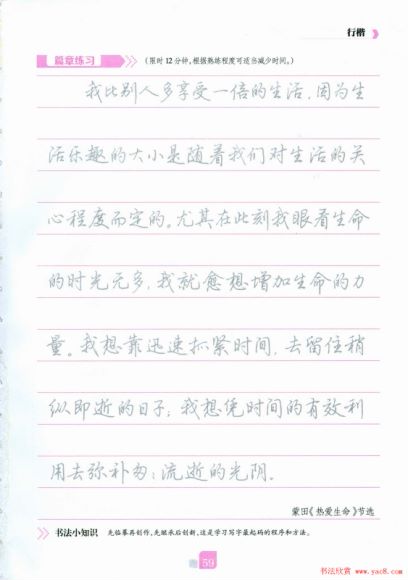 行楷
篇章练习
（限时12分钟，根据熟练程度可适当减少时间。）
我比别人多享受一倍的生活，因为生
活乐趣的大小是随着我们对生活的关
心程度而定的。尤其在此刻我眼看生命
的时光无多，我就愈想增加生命的力
量。我想靠迅速抓紧时间，去留住稍
纵即逝的日子；我想凭时间的有效利
用去弥补匆匆流逝的光阴。
蒙田《热爱生命》节选
书法小知识 先临摹再创作，先继承后创新，这是学习写字最起码的程序和方法。
59
书法欣赏
www.yac8.com